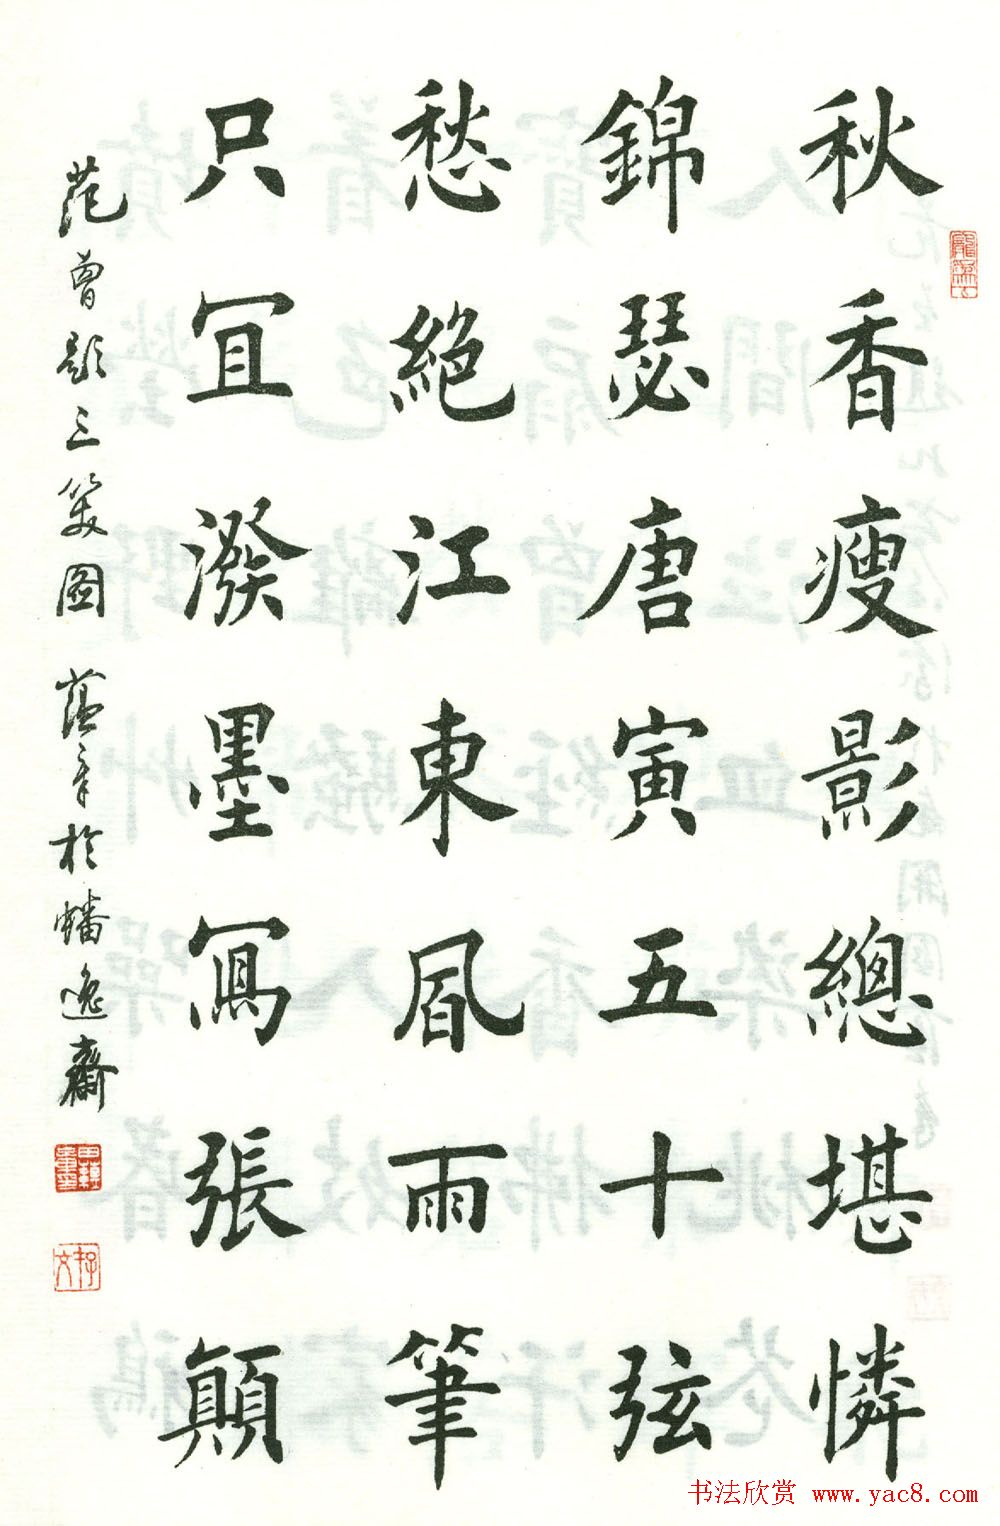 秋香瘦影總堪憐
錦瑟唐寅五十弦
愁絕江東風雨筆
只宜潑墨寫張顛
范曾題三笑圖 蘊章於蟠逸齋
书法欣赏 www.yac8.com